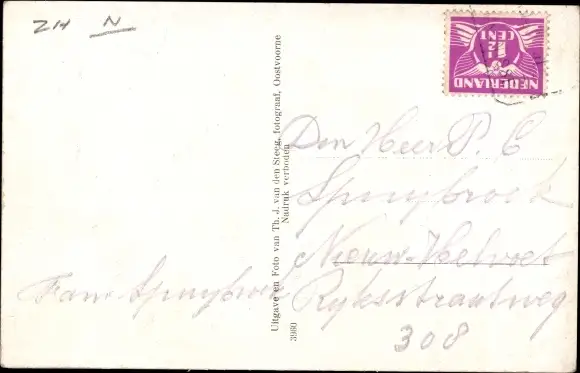 ZH N
NEDERLAND
1½
CENT
Den Heer P. C
Spruybroek
Nieuw-Helvoet
Ryksstraatweg
308
Fam Spruybroek
Uitgave en Foto van Th. J. van den Steeg, fotograaf, Oostvoorne
Nadruk verboden
3960